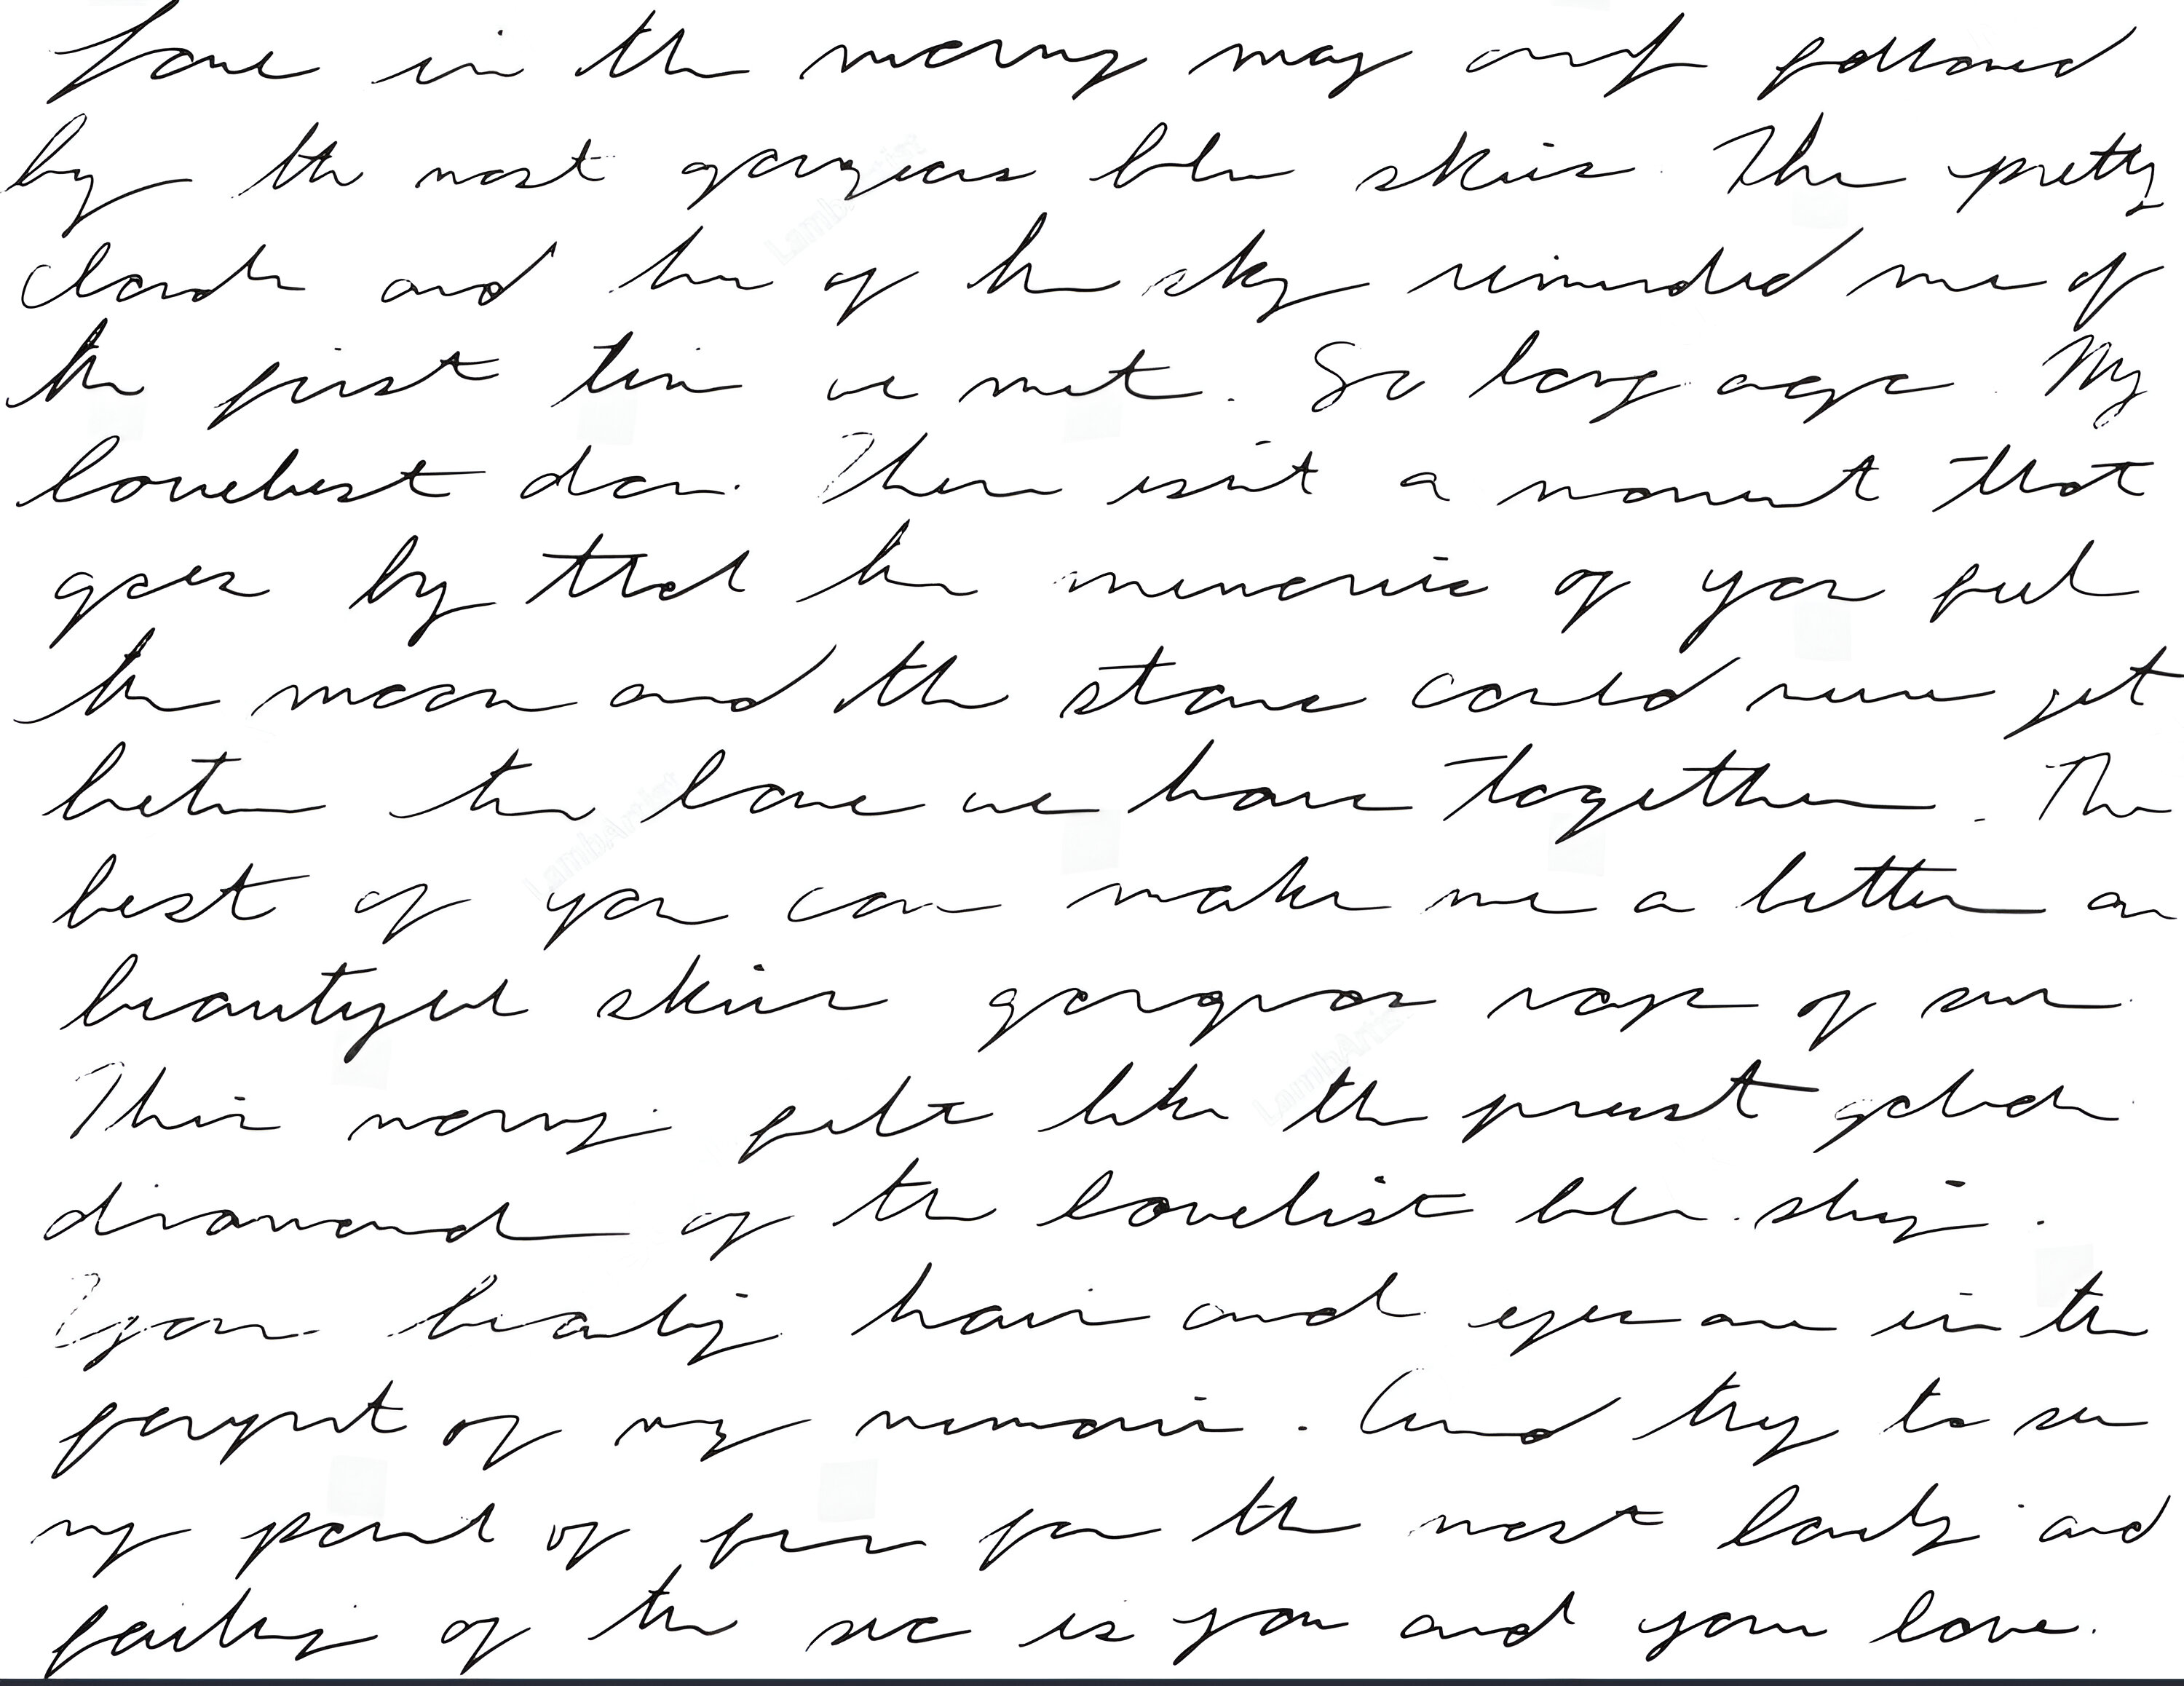 Love in the morning may and followed
by the most gorgeous blue skies. The pretty
clouds and hue of the sky reminded me of
the first time we met. So long ago. My
loveliest dear. There isn't a moment that
goes by that the memories of you feel
the moon and the stars could never get
between the love we have together. The
best of you can make me a better
beautiful skies gorgeous rays of sun
This morning felt like the golden
diamond of the loveliest blue sky.
your hair and eyes are in the
of my memories. And try to see
my point of for the most lovely and
feeling of the sea is you and your love.
LambArtist
LambArtist
LambArtist